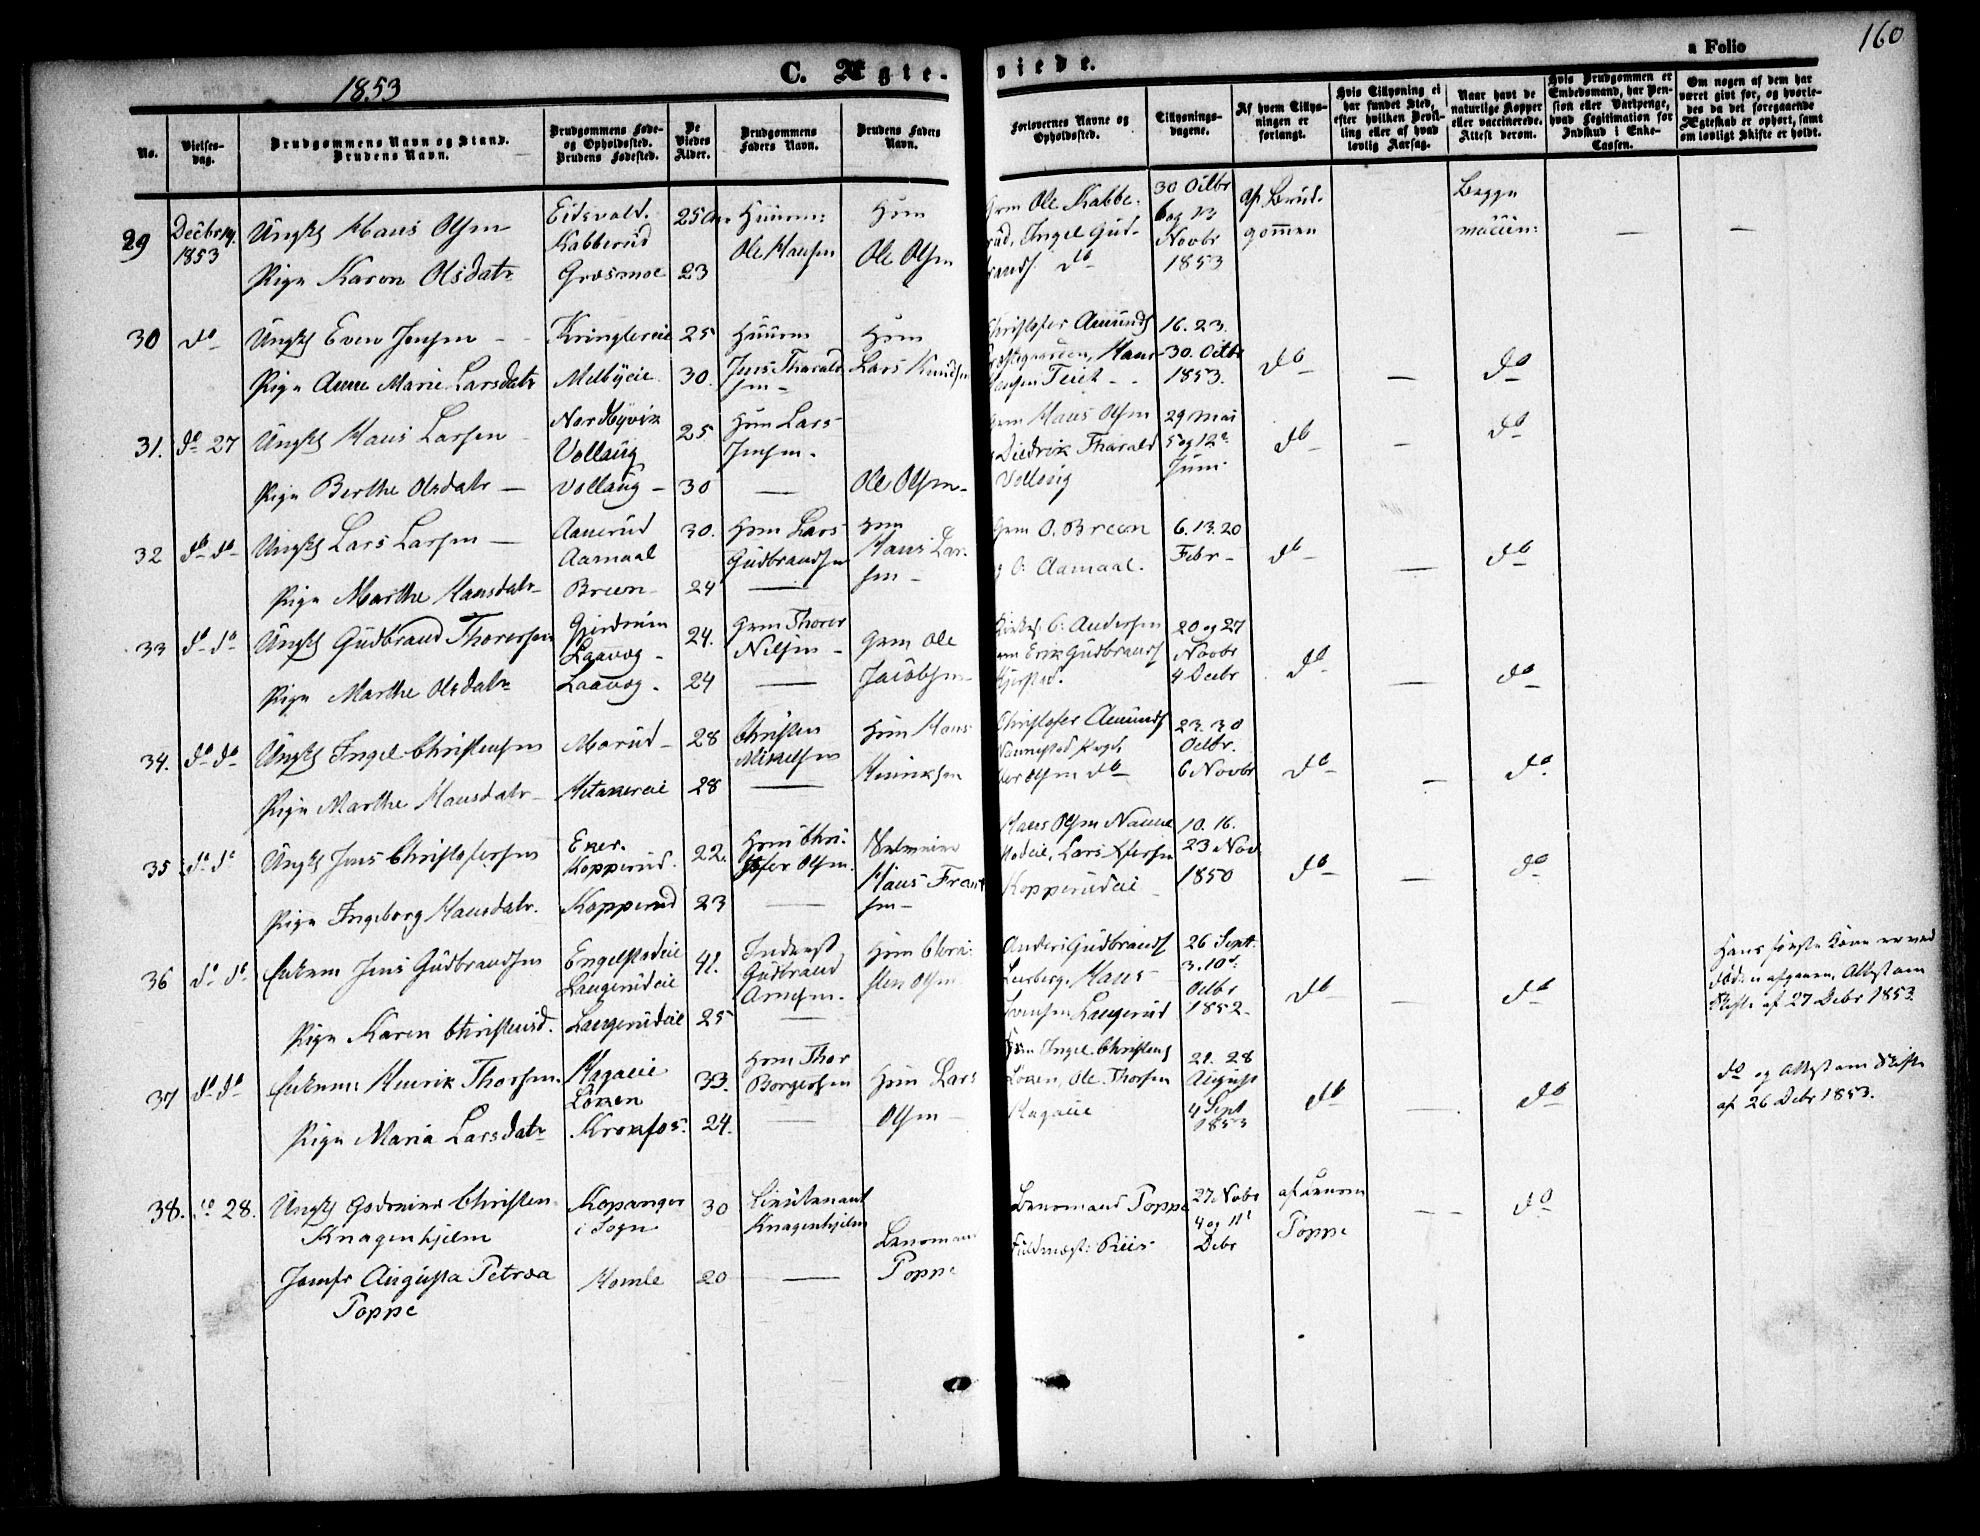 1853
C. Ægte-
viede.
a Folio
160
No.
Vielses-
dag.
Brudgommens Navn og Stand.
Brudens Navn.
Brudgommens Føde-
og Opholdssted.
Brudens Fødested.
De
Viedes
Alder.
Brudgommens
Faders Navn.
Brudens Faders
Navn.
Forlovernes Navne og
Opholdssted.
Tillysnings-
dagene.
Af hvem Tillys-
ningen er
forlangt.
Hvis Tillysning ei
har fundet Sted,
efter hvilken Bevil-
ling eller af hvad
lovlig Aarsag.
Naar havt de
naturlige Kopper
eller vaccinerede.
Attest derom.
Hvis Brudgommen er
Embedsmand, har Pen-
sion eller Vartpenge,
hvad Legitimation for
Indskud i Enke-
Cassen.
Om nogen af dem har
været givt før, og hvorle-
des da det foregaaende
Ægteskab er ophørt, samt
om lovligt Skifte er holdt.
29
Decbr 19.
1853
Ungk Hans Olsen
Pige Karen Olsdatr
Eidsvold.
Kabberud
Græsmoe
25 Aar
23
Huusm:
Ole Hansen
Hsm
Ole Olsen
Grm Ole Kabbe-
rud, Ingel Gud-
brands. do
30 Octbr
6 og 13
Novbr
1853
af Brud-
gommen
Begge
vaccin:
30
do
Ungk Even Jensen
Pige Anne Marie Larsdatr
Kringlereie
Melbyeie
25
30.
Huusm
Jens Tharald
sen
Hsm
Lars Knudsen
Christofer Amunds
Hans
Hansen Teiet
16. 23.
30. Octbr
1853.
do
do
31.
do 27
Ungk Hans Larsen
Pige Berthe Olsdatr
Nordbyvik
Vollaug
Vollaug
25
30
Hsm Lars
Jensen.
Ole Olsen
Grm Hans Olsen
Diedrik Tharald
Vollaug
29 Mai
5 og 12
Juni
do
do
32
do do
Ungk Lars Larsen
Pige Marthe Hansdatr
Aanerud
Aamaal
Breen
30.
24
Hsm Lars
Gudbrandsen
Hsm
Hans Lar-
sen
Grm O. Breen
O: Aamaal.
6. 13. 20
Febr
do
do
33
do do
Ungk Gudbrand Thorersen
Pige Marthe Olsdatr
Laavog
Laavog
24.
24
Grm Thorer
Nilsen
Grm Ole
Jacobsen
O: Andersen
Erik Gudbrands
20 og 27
Novbr
4 Decbr
do
do
34.
do do
Ungk Ingel Christensen
Pige Marthe Hansdatr
Morud
28
28
Christen
Mikelsen
Hsm Hans
Henriksen
Christofer Amunds
Nannestad
Olsen do
23. 30
Octbr.
6 Novbr
do
do
35
do do
Ungk Jens Christofersen
Pige Ingeborg Hansdatr.
Eker.
Kopperud.
Kopperud
22.
23
Hsm Chri-
stofer Olsen
Hans Frant
sen
Hans Olsen Nanne
stadeie, Lars
Kopperudeie
10. 16.
23 Nov
1850
do
do
36
do do
Enkem Jens Gudbrandsen
Pige Karen Christensd.
Engelstadeie
Langerudeie
Langerudeie
41.
25
Inderst
Gudbrand
Arnesen.
Hsm Chri-
sten Olsen
Anders Gudbrands
Hans
Langerud
26 Sept.
3. 10
Octbr
1852.
do
do
Hans første Kone er ved
Døden afgaaen, Attest om
Skifte af 27 Debr 1853.
37
do do
Enkem: Henrik Thorsen
Pige Maria Larsdatr
Hagaeie
Løken
Krokfos
33.
24.
Hsm Thor
Borgersen
Hsm Lars
Olsen
Hsm Ingel Christens
Løken, Ole Thorsen
Hagaeie
21. 28
August
4 Sept
1853
do
do
do og Attest om Skifte
af 26 Debr 1853.
38.
do 28.
Ungk Christen
Knagenhjelm
Jomfr Augusta Petrea
Poppe
Kopanger
i Sogn
Homle
30
20
Lieutenant
Knagenhjelm
Lensmand
Poppe
Lensmand Poppe
Fuldmægt: Riis
27 Novbr
4 og 11
Debr
Poppe
do